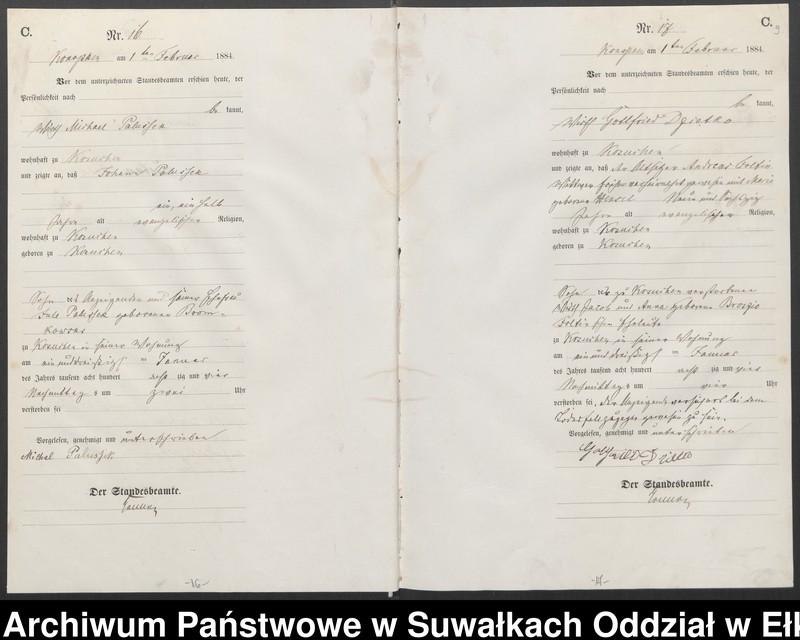 C.
Nr. 16
Konopken am 1ten Februar 1884.
Vor dem unterzeichneten Standesbeamten erschien heute, der
Persönlichkeit nach
be kannt,
Wirth Michael
wohnhaft zu Kosuchen
und zeigte an, daß Johann
ein, ein halb
Jahre alt evangelischer Religion,
wohnhaft zu Kosuchen
geboren zu Kosuchen
Sohn des Anzeigenden und seiner Ehefrau
Jule geborenen
zu Kosuchen in seiner Wohnung
am einunddreißigst en Januar
des Jahres tausend acht hundert acht zig und vier
Nachmittags um zwei Uhr
verstorben sei
Vorgelesen, genehmigt und unterschrieben
Michel
Der Standesbeamte.
-16-
C.
9
Nr. 17
Konopken am 1ten Februar 1884.
Vor dem unterzeichneten Standesbeamten erschien heute, der
Persönlichkeit nach
be kannt,
Wirth Gottfried Dziatko
wohnhaft zu Kosuchen
und zeigte an, daß der Altsitzer Andreas Soltin
Wittwer früher verheirathet gewesen mit Marie
geborene Neun und sechszig
Jahre alt evangelischer Religion,
wohnhaft zu Kosuchen
geboren zu Kosuchen
Sohn der zu Kosuchen verstorbenen
Wirth Jacob und Anna geborene
Soltin schen Eheleute
zu Kosuchen in seiner Wohnung
am einunddreißigst en Januar
des Jahres tausend acht hundert acht zig und vier
Nachmittags um vier Uhr
verstorben sei, der Anzeigende versichert bei dem
Todesfall zugegen gewesen zu sein.
Vorgelesen, genehmigt und unterschrieben
Der Standesbeamte.
-17-
Archiwum Państwowe w Suwałkach Oddział w Eł